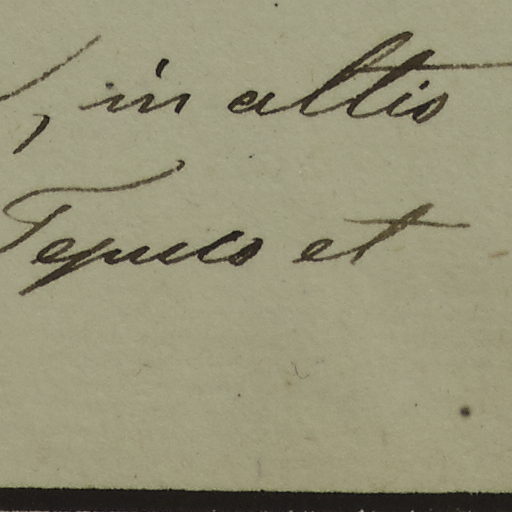 , in altis
Tepues et